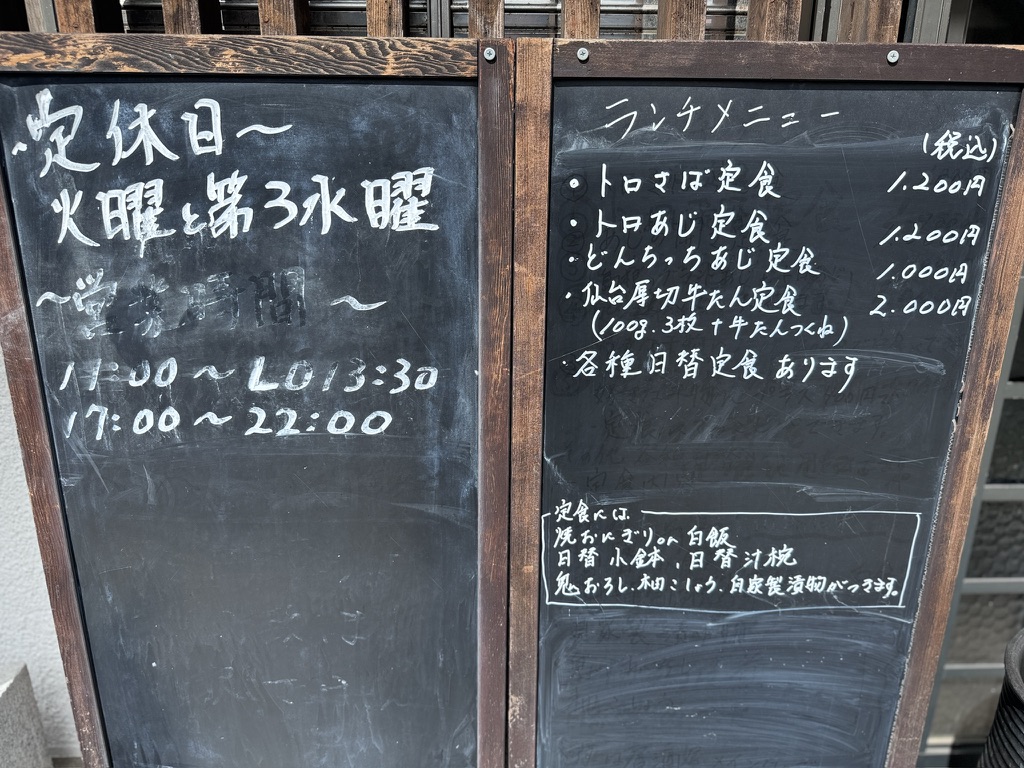 ~定休日~
火曜と第3水曜
~営業時間~
11:00~LO13:30
17:00~22:00
ランチメニュー
(税込)
・トロさば定食 1.200円
・トロあじ定食 1.200円
・どんちっちあじ定食 1.000円
・仙台厚切牛たん定食 2.000円
(100g.3枚+牛たんつくね)
・各種日替定食あります
定食には
焼おにぎりor白飯
日替小鉢、日替汁椀
鬼おろし、柚こしょう、自家製漬物がつきます。